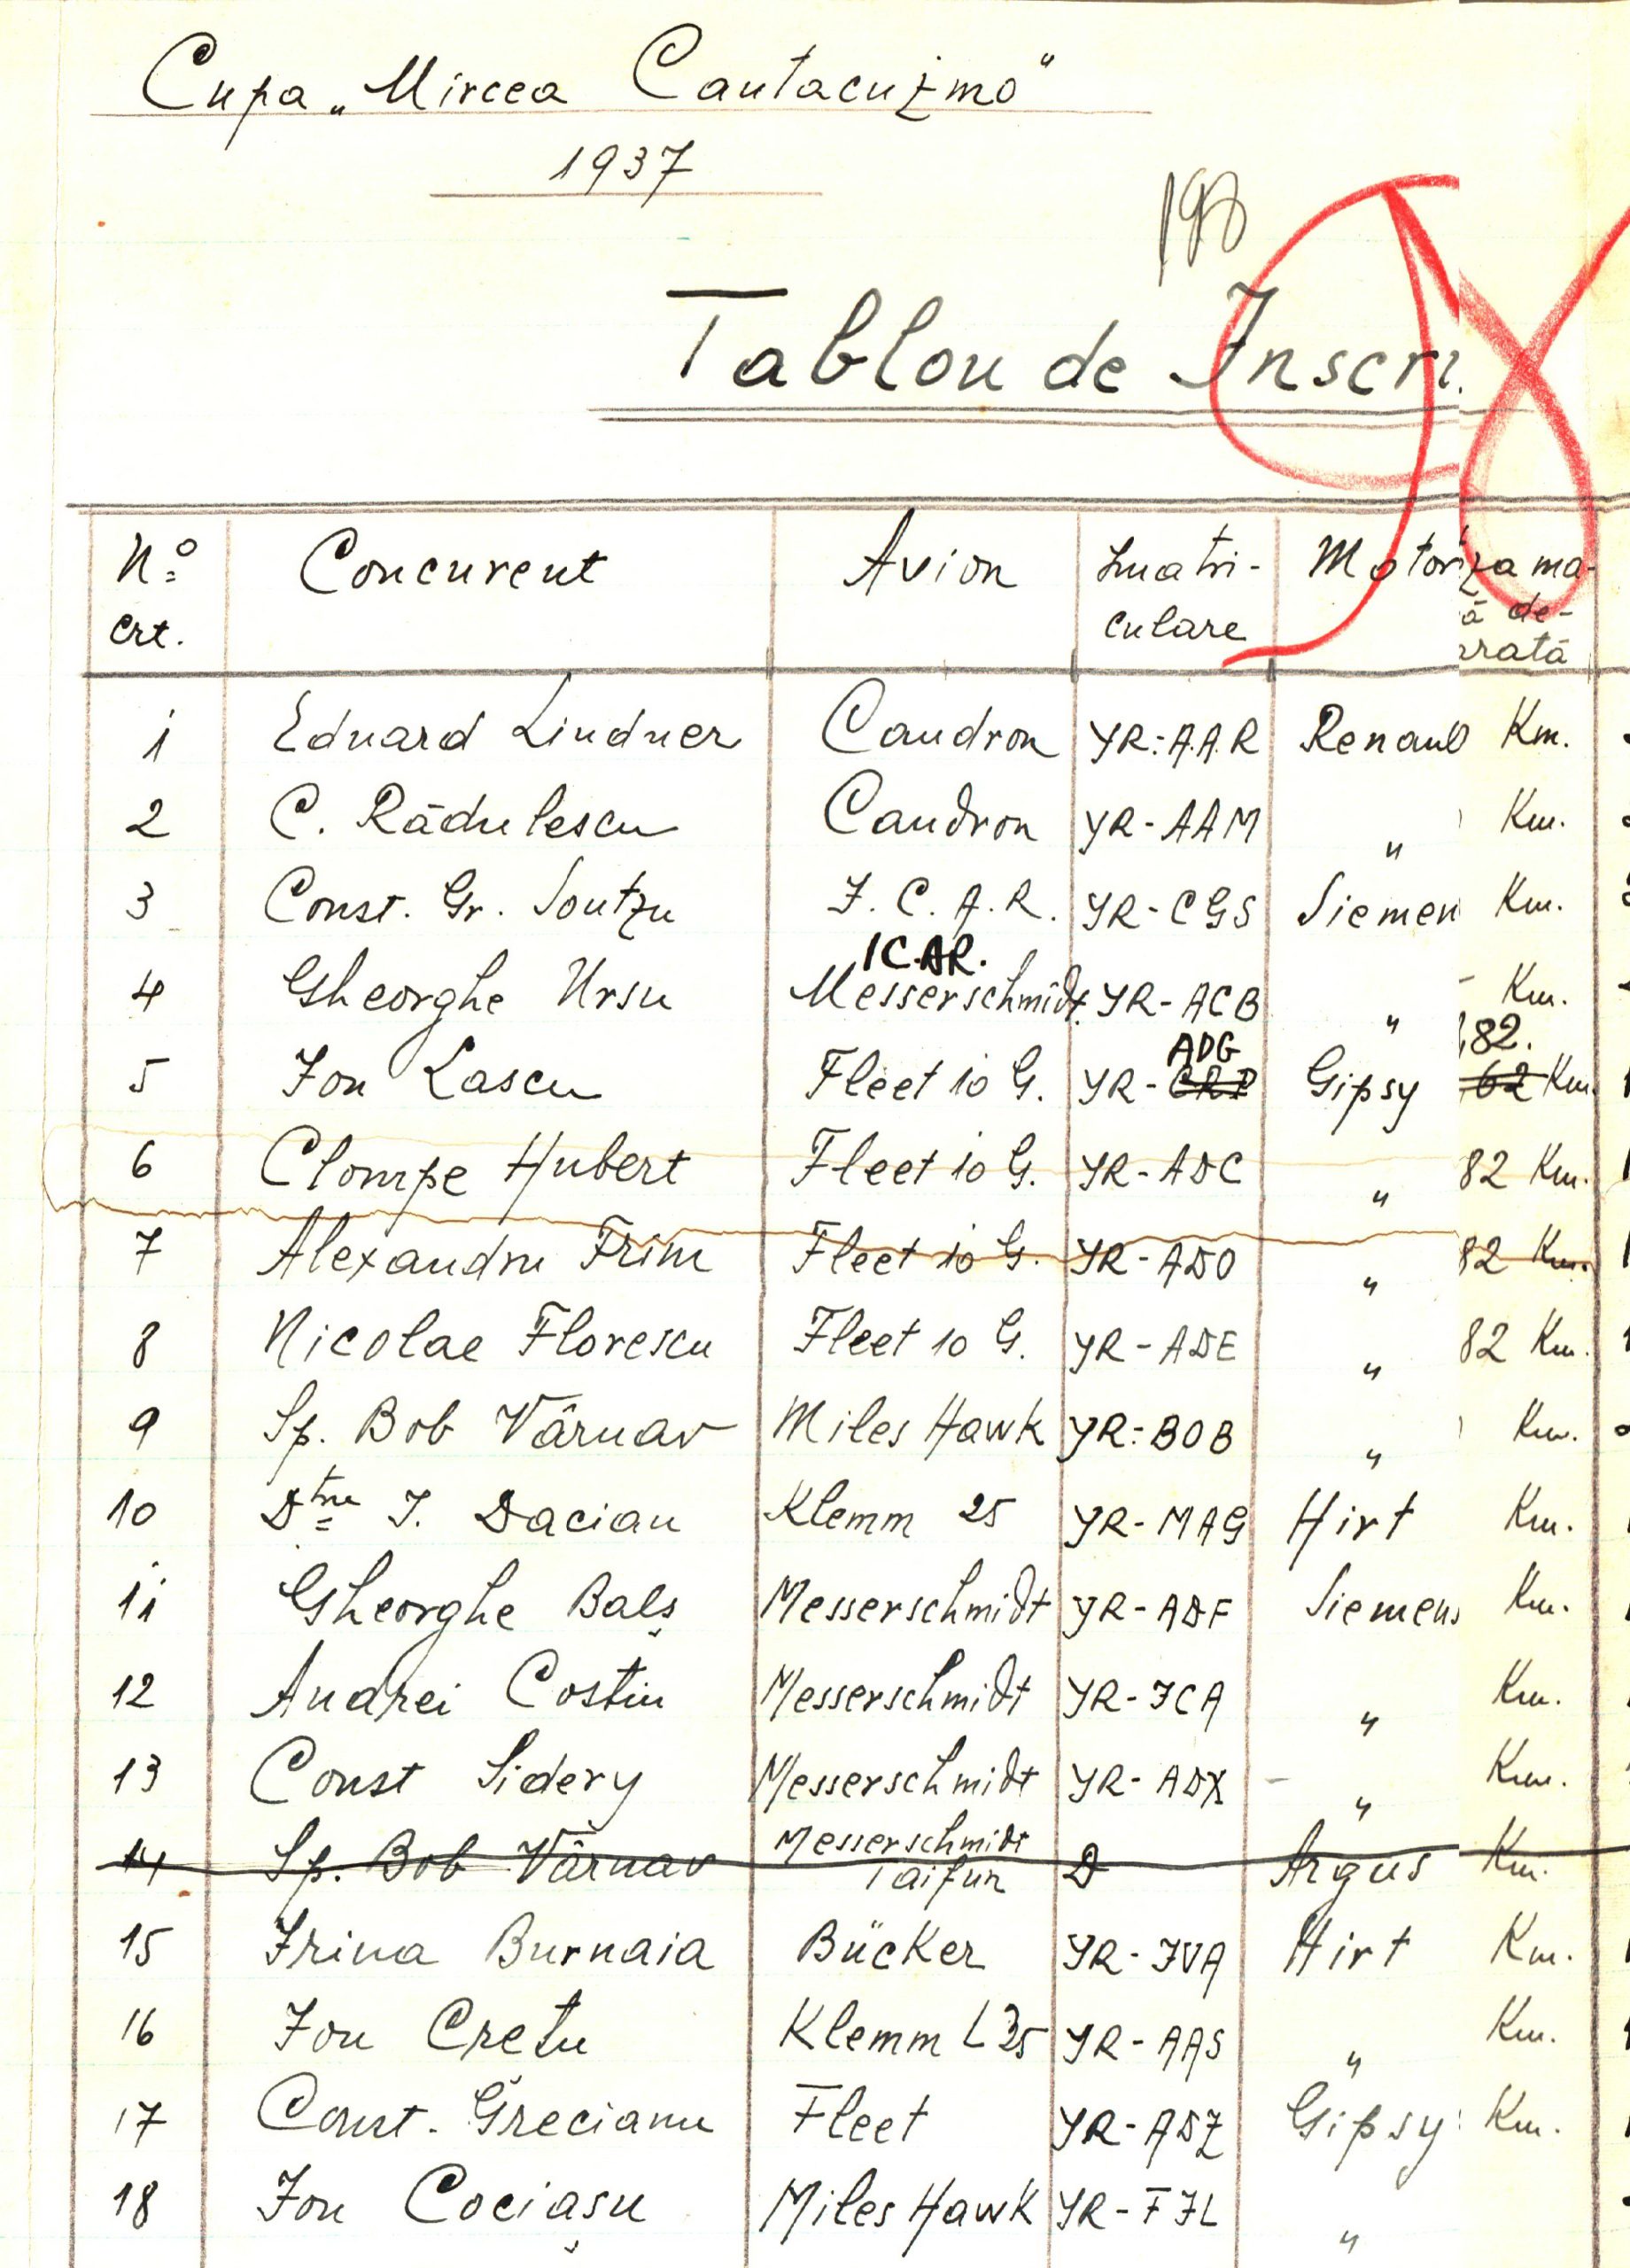 Cupa „Mircea Cantacuzino"
1937
198
Tablou de Inscri
No crt. Concurent Avion Imatri-culare Motor za ma-
ă de-
arată
1 Eduard Lindner Caudron YR-A.A.R Renaul Km.
2 C. Rădulescu Caudron YR-AAM " Km.
3 Const. Gr. Soutzu I.C.A.R. YR-CGS Siemen Km.
ICAR.
4 Gheorghe Ursu Messerschmidt YR-ACB " Km.
ADG 182.
5 Ion Lascu Fleet 10 G. YR-CRP Gipsy 62 Km.
6 Clompe Hubert Fleet 10 G. YR-ADC " 82 Km.
7 Alexandru Frim Fleet 10 G. YR-ADO " 82 Km.
8 Nicolae Florescu Fleet 10 G. YR-ADE " 82 Km.
9 Sp. Bob Vârnav Miles Hawk YR-BOB " Km.
10 Dtru I. Dacian Klemm 25 YR-MAG Hirt Km.
11 Gheorghe Balș Messerschmidt YR-ADF Siemens Km.
12 Andrei Costin Messerschmidt YR-ICA " Km.
13 Const Sidery Messerschmidt YR-ADX " Km.
14 Sp. Bob Vârnav Messerschmidt Taifun D Argus Km.
15 Irina Burnaia Bücker YR-IVA Hirt Km.
16 Ion Crețu Klemm L 35 YR-AAS " Km.
17 Const. Grecianu Fleet YR-ADZ Gipsy Km.
18 Ion Cociașu Miles Hawk YR-FIL "